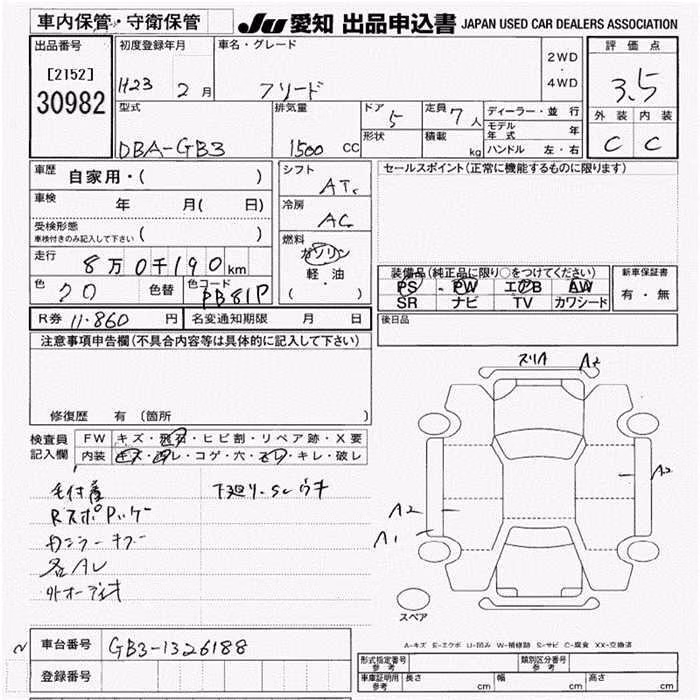 車内保管・守衛保管
JU 愛知 出品申込書 JAPAN USED CAR DEALERS ASSOCIATION
出品番号
[2152]
30982
初度登録年月
H23 2 月
車名・グレード
フリード
2WD
・
4WD
評価点
3.5
外装 内装
C C
型式
DBA-GB3
排気量
1500 cc
ドア
5
形状
定員 7 人
積載 kg
ディーラー・並 行
モデル年式 年
ハンドル 左・右
車歴 自家用・( )
車検 年 月( 日)
受検形態
車検付きのみ記入して下さい ( )
走行 8万0千190km
色 クロ 色替 色コード PB81P
シフト
AT
冷房
AC
燃料
ガソリン
軽・油
( )
セールスポイント(正常に機能するものに限ります)
装備品(純正品に限り○をつけてください)
PS・PW エアB AW
SR ナビ TV カワシード
新車保証書
有・無
R券 11.860 円 名変通知期限 月 日
後日品
注意事項申告欄(不具合内容等は具体的に記入して下さい)
修復歴 有 (箇所 )
検査員
記入欄
FW キズ・飛石・ヒビ割・リペア跡・X要
内装 キズ・汚レ・コゲ・穴・スレ・キレ・破レ
下廻り・SCウキ
各AL
スリA
A2
A2
A2
A1
スペア
A-キズ E-エクボ U-凹み W-補修跡 S-サビ C-腐食 XX-交換済
車台番号 GB3-1326188
登録番号
形式指定番号
参考
類別区分番号
参考
車庫証明用
参考
長さ cm 幅 cm 高さ cm